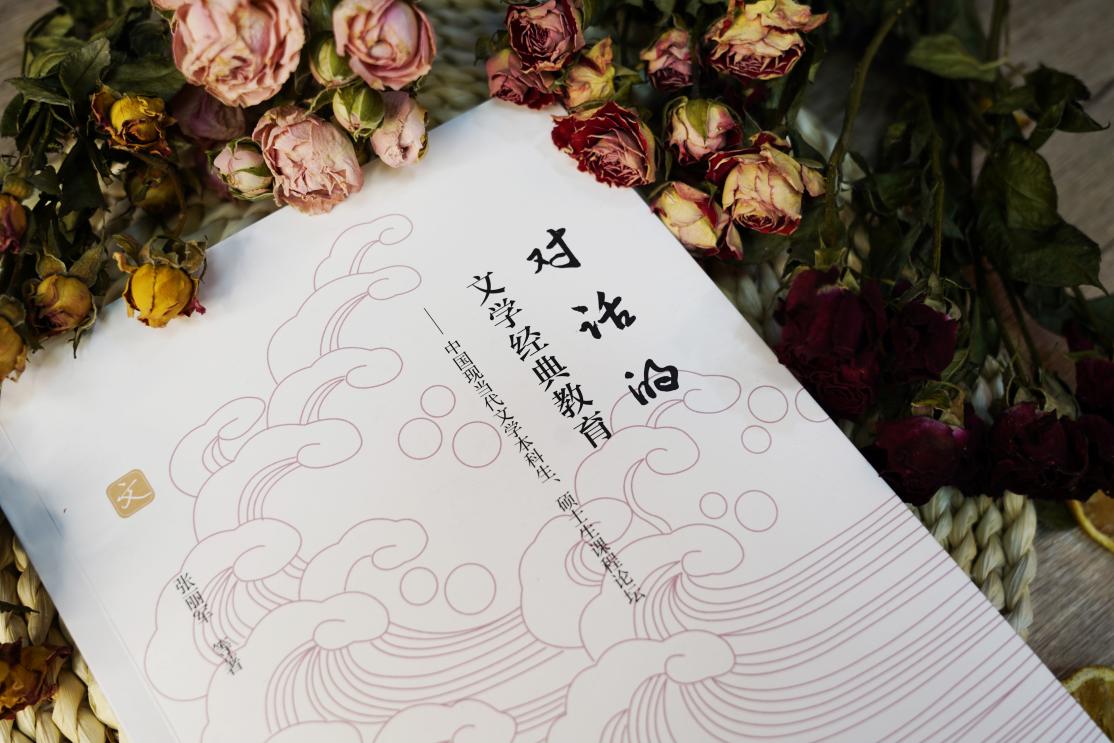 对话的
文学经典教育
——中国现当代文学本科生、硕士生课程论坛
文
张丽军 等著